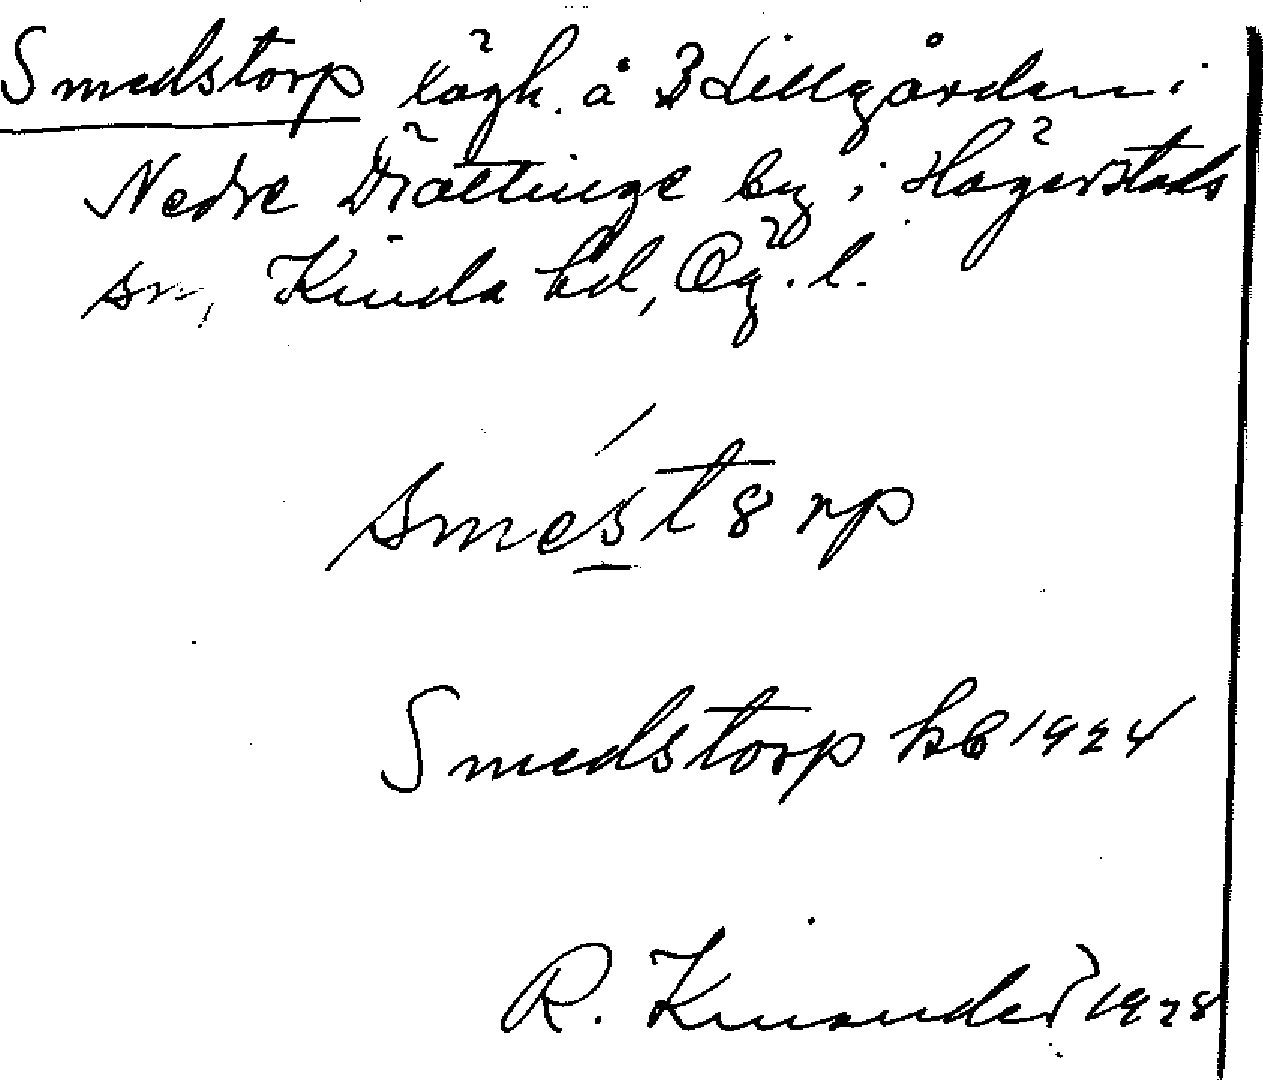 Smedstorp lägh. å 3 Lillgården i
Nedre Drättinge by i Hägerstads
sn, Kinda hd, Ög. l.
smést8rp
Smedstorp kb 1924
R. Kinander 1928